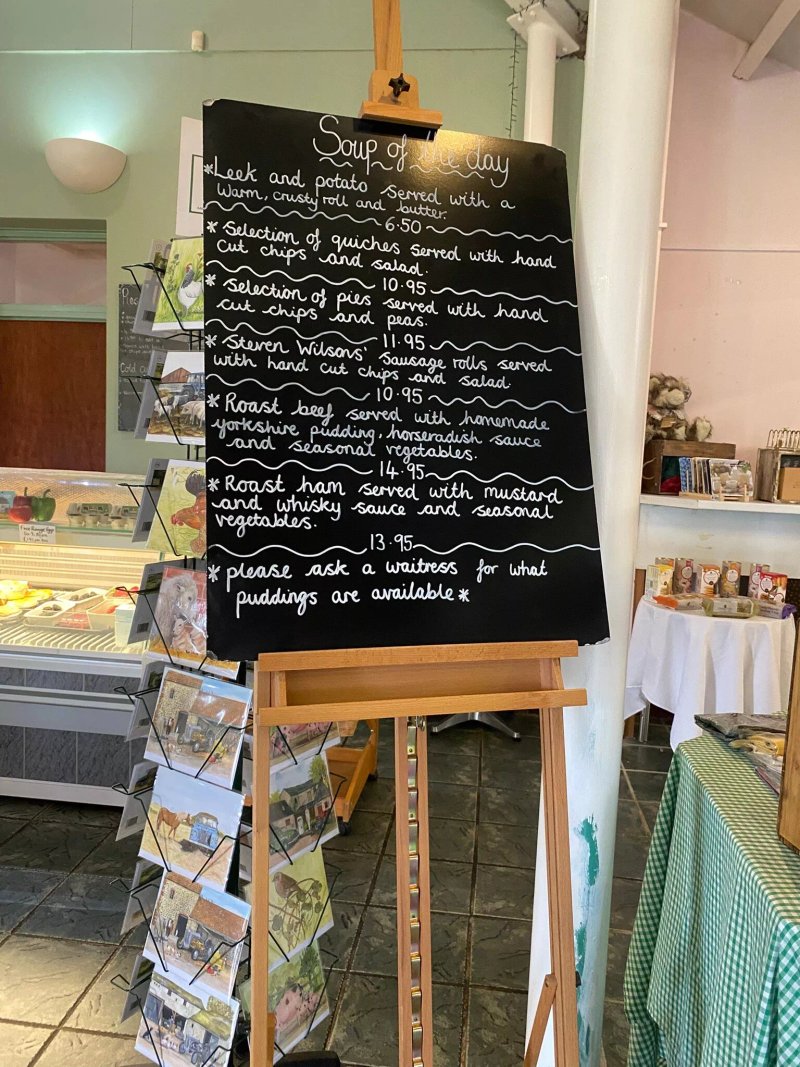 Soup of the day
*Leek and potato served with a
warm, crusty roll and butter.
6.50
* Selection of quiches served with hand
cut chips and salad.
10.95
* Selection of pies served with hand
cut chips and peas.
11.95
* Steven Wilsons' Sausage rolls served
with hand cut chips and salad.
10.95
* Roast beef served with homemade
yorkshire pudding, horseradish sauce
and seasonal vegetables.
14.95
* Roast ham served with mustard
and whisky sauce and seasonal
vegetables.
13.95
* please ask a waitress for what
puddings are available *
Pies
Cold
Free Range Eggs